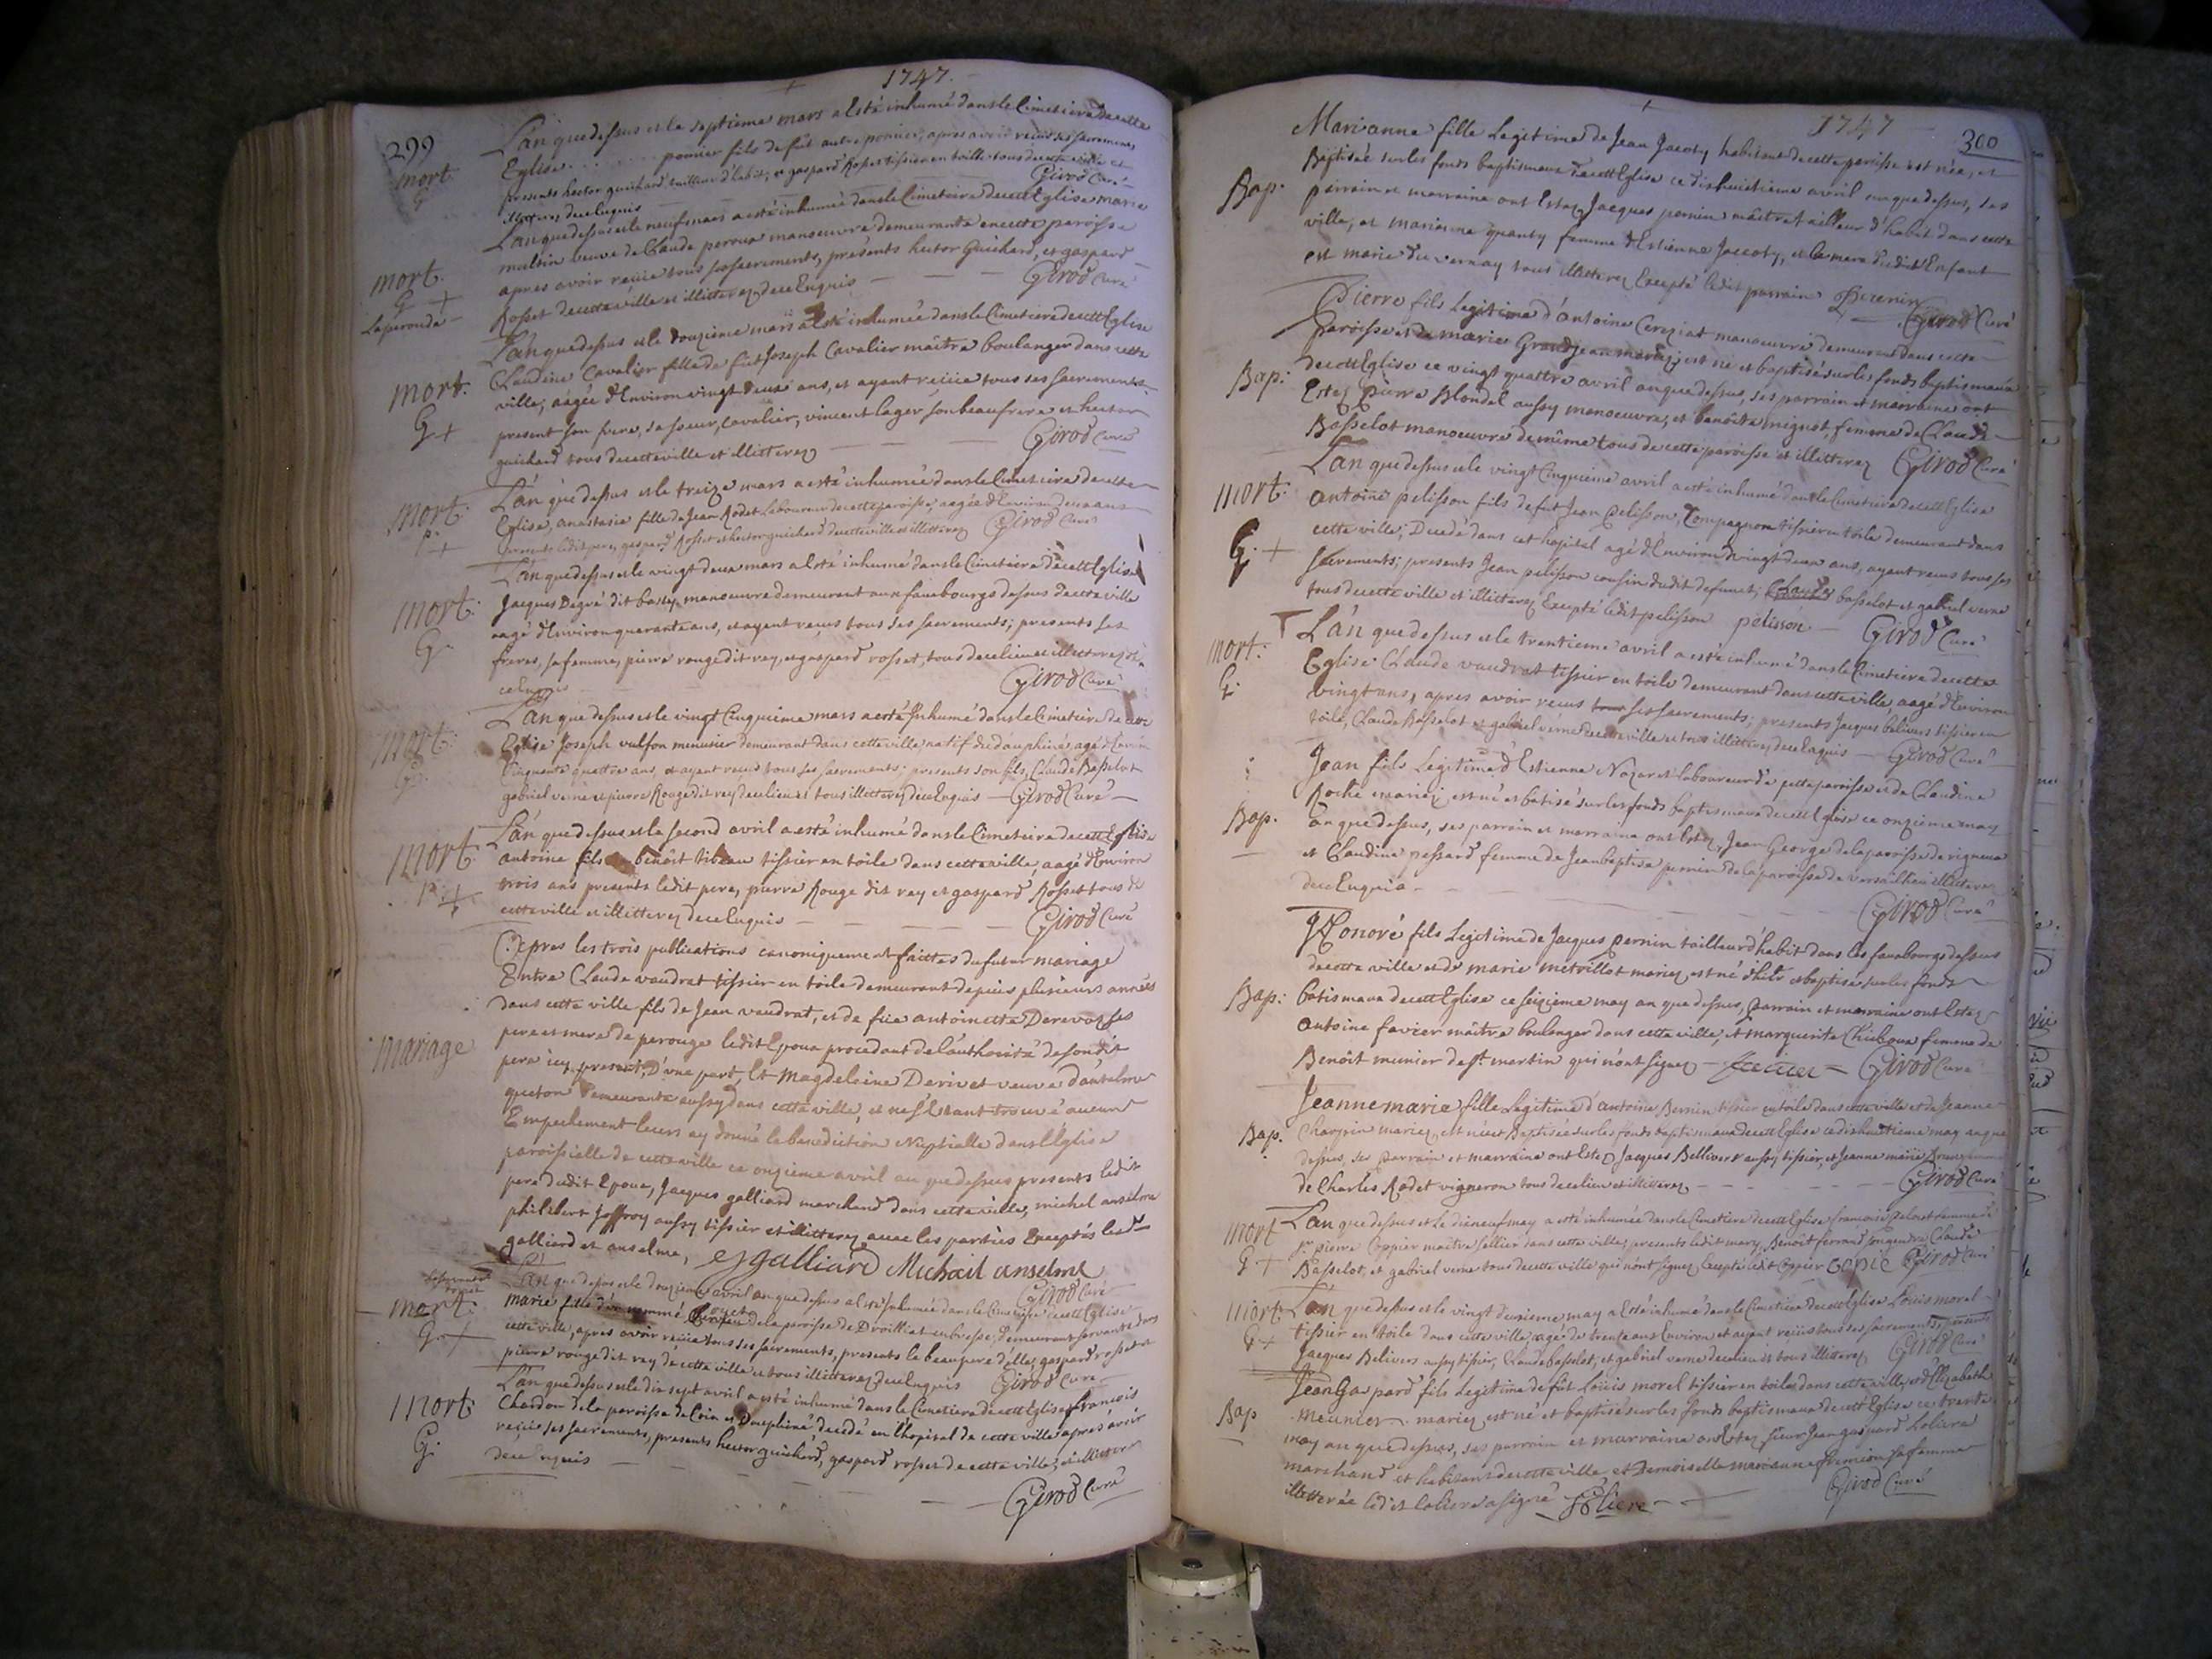 1747.
299
mort
G
L'an que dessus et le septieme mars a esté inhumé dans le Cimetiere de cette
Eglise . . . . . . ponier fils de fût autre ponier, apres avoir reçu ses sacrements
presents hector guichard tailleur d'habit, et gaspard Rosset tissier en toille tous de cette ville et
illitterez de ce Enquis Girod Curé
mort.
G +
Laperouda
L'an que dessus et le neuf mars a esté inhumée dans le Cimetiere de cett Eglise marie
multin veuve de Claude peroux manoeuvre demeurante en cette paroisse
apres avoir reciie tous ses sacrements, presents hector Guichard, et gaspard
Rosset de cette ville et illitterez de ce Enquis Girod Curé
mort.
G +
L'an que dessus et le douzième mars a esté inhumée dans le Cimetiere de cett Eglise
Claudine Cavalier fille de fût Joseph Cavalier maître boulanger dans cette
ville, aagée d'Environ vingt deux ans, et ayant reciie tous ses sacrements
present son frere, sa soeur, Cavalier, vincent lager son beaufrere et hector
guichard tous de cette ville et illitterez Girod Curé
mort.
p. +
L'an que dessus et le treize mars a esté inhumée dans le Cimetiere de cette
Eglise, anastasie fille de Jean Rodet Laboureur de cette paroisse, aagée d'Environ deux ans
presents ledit pere, gaspard Rosset et hector guichard de cette ville et illitterez Girod Curé
mort.
G.
L'an que dessus et le vingt deux mars a esté inhumé dans le Cimetiere de cett Eglise
Jacques Degré dit bassy manoeuvre demeurant aux fauxbourgs dessus de cette ville
aagé d'Environ quarante ans, et ayant reçus tous ses sacrements; presents ses
freres, sa femme, pierre rouge dit rey, et gaspard rosset, tous de ce lieu et illitterez de
ce Enquis Girod Curé
mort.
G.
L'an que dessus et le vingt Cinquieme mars a esté Inhumé dans le Cimetiere de cette
Eglise Joseph vulson menusier demeurant dans cette ville natif du dauphiné, agé d'Environ
Cinquante quattre ans, et ayant reçus tous ses sacrements; presents son fils, Claude Basselot
gabriel verne et pierre Rouge dit rey de ce lieu et tous illitterez de ce Enquis Girod Curé
mort.
p. +
L'an que dessus et le second avril a esté inhumé dans le Cimetiere de cett Eglise
antoine fils de benoît tiveau tissier en toile dans cette ville, aagé d'Environ
trois ans presents ledit pere, pierre Rouge dit rey et gaspard Rosset tous de
cette ville et illitterez de ce Enquis Girod Curé
mariage
Apres les trois publications canoniquement faittes du futur mariage
Entre Claude vaudrat tissier en toile demeurant depuis plusieurs années
dans cette ville fils de Jean vaudrat, et de fiie antoinette Derevoz ses
pere et mere de perouge ledit Epoux procedant de l'authorité de sondit
pere icy present, d'une part, Et Magdeleine Derivet veuve d'antelme
queton demeurante aussy dans cette ville, et ne s'Estant trouvé aucun
Empechement leurs ay donné la benediction Nuptialle dans l'Eglise
paroissialle de cette ville ce onzieme avril an que dessus presents ledit
pere dudit Epoux, Jacques galliard marchand dans cette ville, michel anselme
philibert Joffroy aussy tissier et illitterez avec les parties Exceptés lesd.
galliard et anselme, galliard Michail anselme
Girod Curé
mort.
G. +
L'an que dessus et le douzieme avril an que dessus a esté Inhumée dans le Cimetiere de cett Eglise
marie fille d'un nommé de la paroisse de Droilliat en bresse, demeurant servante dans
cette ville, apres avoir reciie tous ses sacrements, presents le beau pere d'elle, gaspard rosset et
pierre rouge dit rey de cette ville et tous illitterez de ce Enquis Girod Curé
mort.
G.
L'an que dessus et le dix sept avril a esté inhumé dans le Cimetiere de cett Eglise françois
Chardon de la paroisse de Crin en Dauphiné decedé en l'hopital de cette ville apres avoir
reciie ses sacrements, presents hector guichard, gaspard rosset de cette ville, et illitterez
de ce Enquis
Girod Curé
1747
300
Bap.
Marianne fille Legitime de Jean Jacoty habitant de cette paroisse est née, et
Baptisée sur les fonds baptismaux de cett Eglise ce dishuitieme avril an que dessus, ses
parrain et marraine ont Estez Jacques pernin maître tailleur d'habit dans cette
ville, et marianne quanty femme d'Estienne Jacoty, et la mere dudit Enfant
est marie du vernay tous illitterez Excepté ledit parrain Pernin
Girod Curé
Bap:
Pierre fils Legitime d'antoine Cereziat manoeuvre demeurant dans cette
paroisse et de marie Grandjean mariez, est né et baptisé sur les fonds baptismaux
de cett Eglise ce vingt quattre avril an que dessus, ses parrain et marraine ont
Estez Pierre Blondel aussy manoeuvre, et benoîte mignot, femme de Claude
Basselot manoeuvre de même tous de cette paroisse et illitterez Girod Curé
mort.
G. +
L'an que dessus et le vingt Cinquieme avril a esté inhumé dans le Cimetiere de cett Eglise
antoine pelisson fils de fut Jean Pelisson, Compagnon tissier en toile demeurant dans
cette ville, Decedé dans cet hopital agé d'Environ vingt deux ans, ayant reçus tous ses
sacrements; presents Jean pelisson cousin dudit defunct; Claude basselot et gabriel verne
tous de cette ville et illitterez Excepté ledit pelisson pelisson Girod Curé
mort.
G.
L'an que dessus et le trentieme avril a esté inhumé dans le Cimetiere de cette
Eglise Claude vaudrat tissier en toile demeurant dans cette ville, aagé d'Environ
vingt ans, apres avoir reçus tous ses sacrements; presents Jacques belivers tissier en
toile, Claude Basselot et gabriel verne de cette ville et tous illitterez de ce Enquis Girod Curé
Bap.
Jean fils Legitime d'Estienne Nozaret laboureur de cette paroisse et de Claudine
Roche mariez, est né et batisé sur les fonds baptismaux de cett Eglise ce onzieme may
an que dessus, ses parrain et marraine ont Estez, Jean George de la paroisse de rigneux
et Claudine pessard femme de Jean baptiste pernin de la paroisse de versailleu illitterez
de ce Enquis
Girod Curé
Bap:
Honoré fils Legitime de Jacques Pernin tailleur d'habit dans les fauxbourgs dessus
de cette ville et de marie metrillot mariez, est né d'hier et baptisé sur les fonds
batismaux de cett Eglise ce seizieme may an que dessus, Parrain et marraine ont Estez
antoine favier maître boulanger dans cette ville, et marguerite Chiboux femme de
Benoît munier de st. martin qui n'ont signez favier Girod Curé
Bap.
Jeannemarie fille Legitime d'antoine Bernin tissier en toile dans cette ville et de Jeanne
Charprin mariez, est née et Baptisée sur les fonds baptismaux de cett Eglise ce dishuitieme may an que
dessus, ses Parrain et marraine ont Estez Jacques Bellivers aussy tissier, et Jeanne marie femme
de Charles Rodet vigneron tous de ce lieu et illitterez Girod Curé
mort
G +
L'an que dessus et le dixneuf may a esté inhumée dans le Cimetiere de cett Eglise francoise pelouet femme de
sr. pierre Coppier maître sellier dans cette ville, presents ledit mary, Benoît ferrand son gendre Claude
Basselot, et gabriel verne tous de cette ville qui n'ont signez Excepté ledit Coppier Copié Girod Curé
mort
G +
L'an que dessus et le vingt deuxieme may a Esté inhumé dans le Cimetiere de cett Eglise Louis morel
tissier en toile dans cette ville agé de trente ans Environ et ayant reçus tous ses sacrements, presents
Jacques Belivers aussy tissier, Claude basselot, et gabriel verne de ce lieu et tous illitterez Girod Curé
Bap
Jean Gaspard fils Legitime de fût Louis morel tissier en toile dans cette ville, et d'Elizabeth
meunier mariez est né et baptisé sur les fonds baptismaux de cett Eglise ce trente
may an que dessus, ses parrain et marraine ont Estez sieur Jean gaspard Loliere
marchand et habitant de cette ville et Demoiselle marianne premion sa femme
illitterée ledit Loliere a signé Loliere
Girod Curé